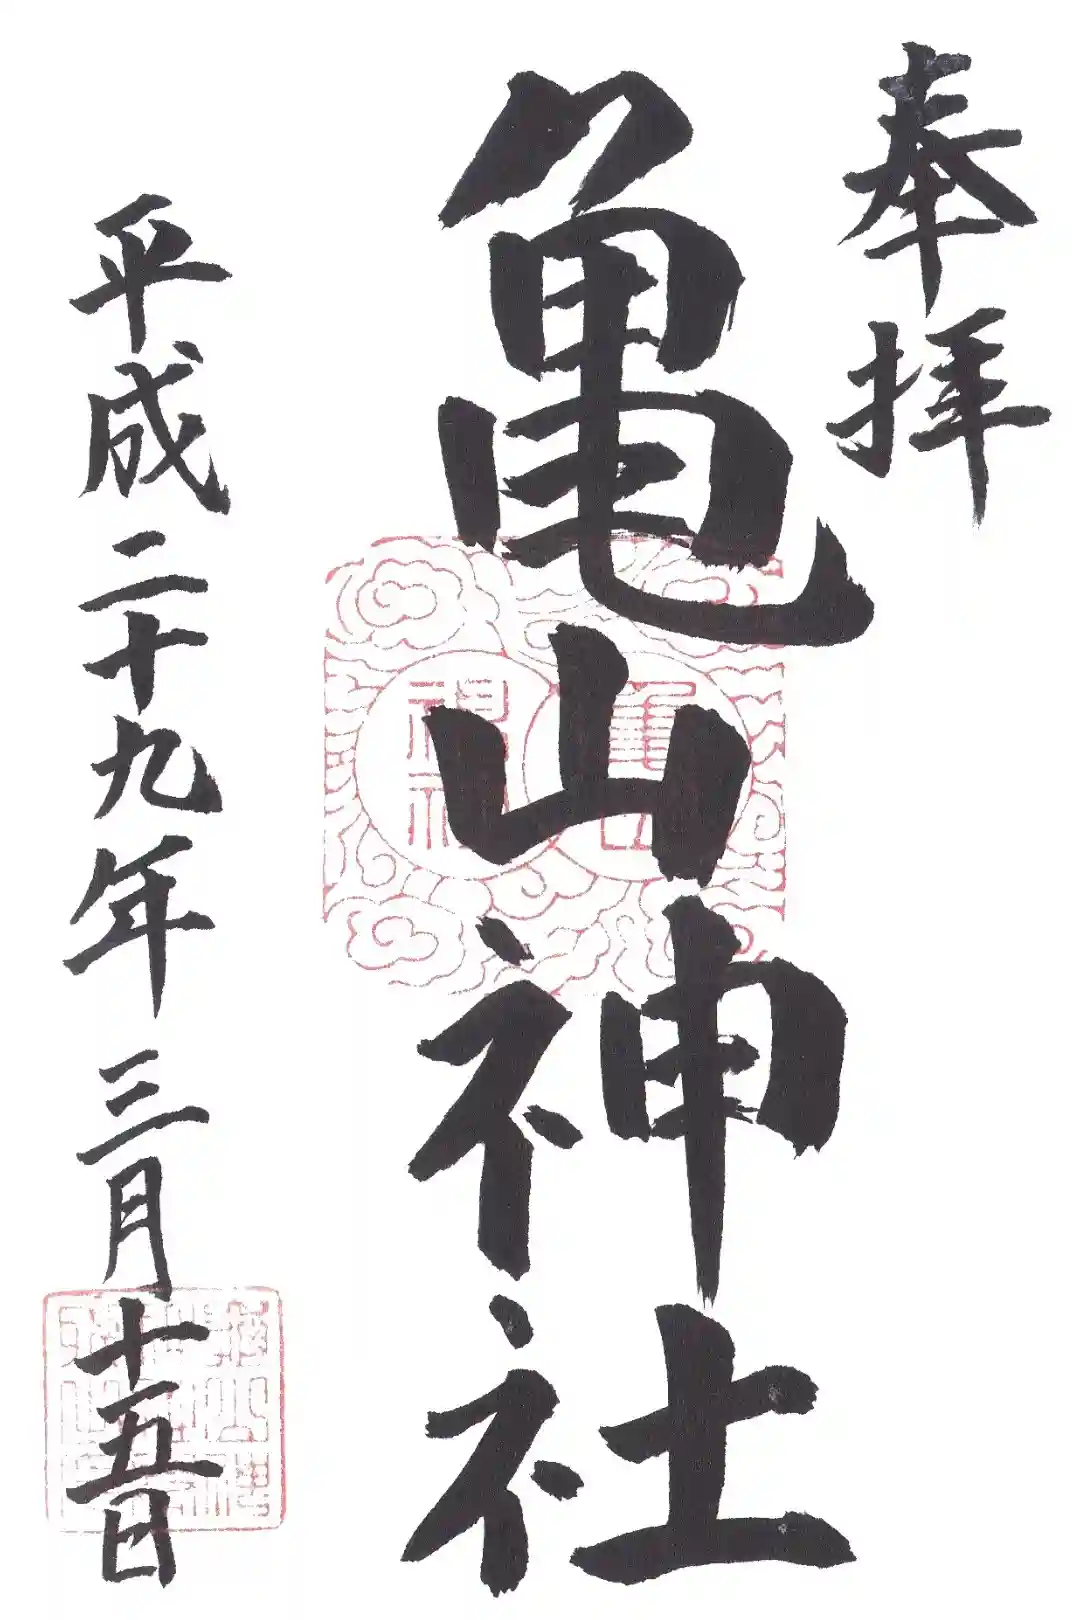 奉拝
亀山神社
平成二十九年三月十五日